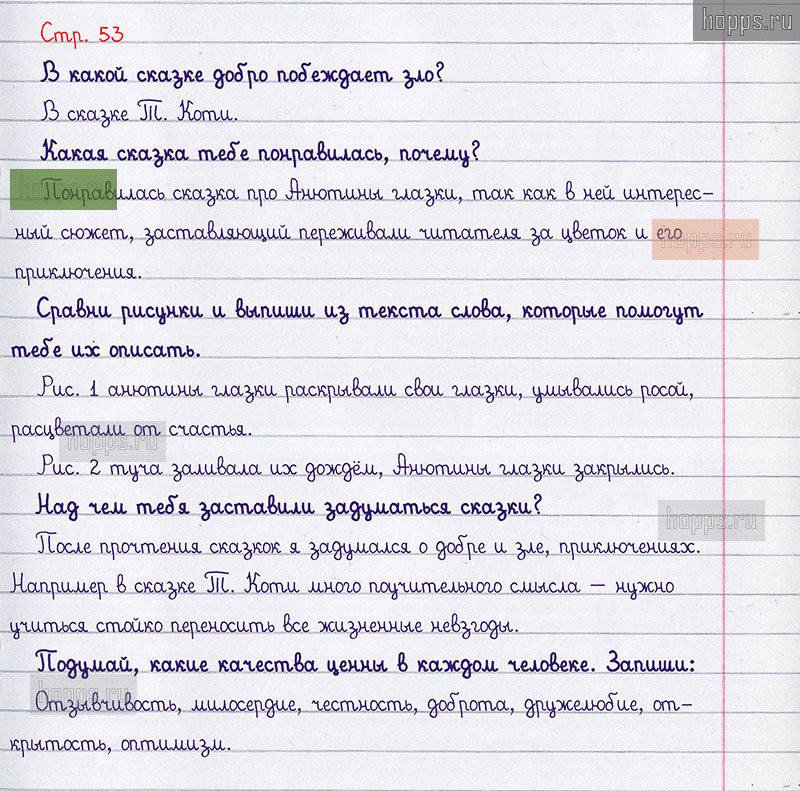 hopps.ru
Стр. 53
В какой сказке добро побеждает зло?
В сказке Т. Коти.
Какая сказка тебе понравилась, почему?
Понравилась сказка про Анютины глазки, так как в ней интерес-
ный сюжет, заставляющий переживали читателя за цветок и его
hopps.ru
приключения.
Сравни рисунки и выпиши из текста слова, которые помогут
тебе их описать.
Рис. 1 анютины глазки раскрывали свои глазки, умывались росой,
расцветали от счастья.
hopps.ru
Рис. 2 туча заливала их дождём, Анютины глазки закрылись.
Над чем тебя заставили задуматься сказки?
hopps.ru
После прочтения сказкок я задумался о добре и зле, приключениях.
Например в сказке Т. Коти много поучительного смысла – нужно
учиться стойко переносить все жизненные невзгоды.
Подумай, какие качества ценны в каждом человеке. Запиши:
hopps.ru
Отзывчивость, милосердие, честность, доброта, дружелюбие, от-
крытость, оптимизм.